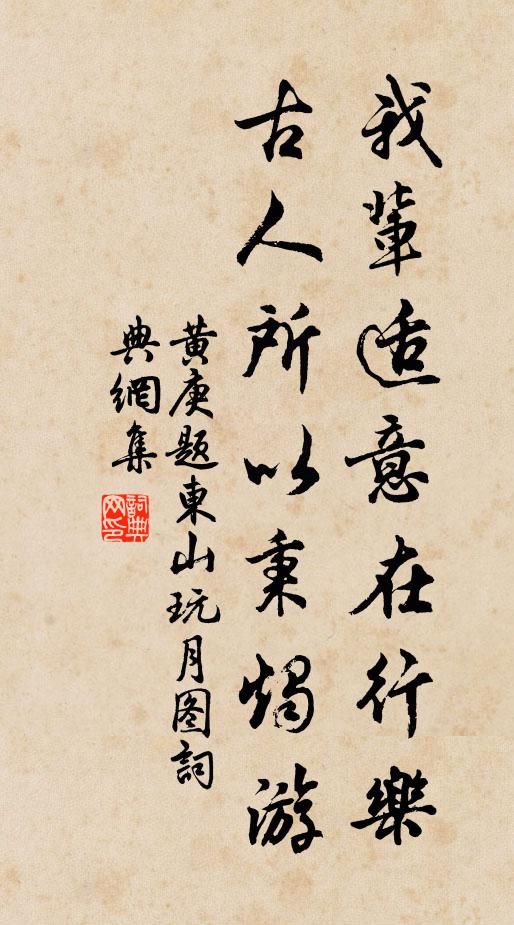 我輩适意在行樂
古人所以秉燭游
黄庚題東山玩月图詞
典網集
詞典网印